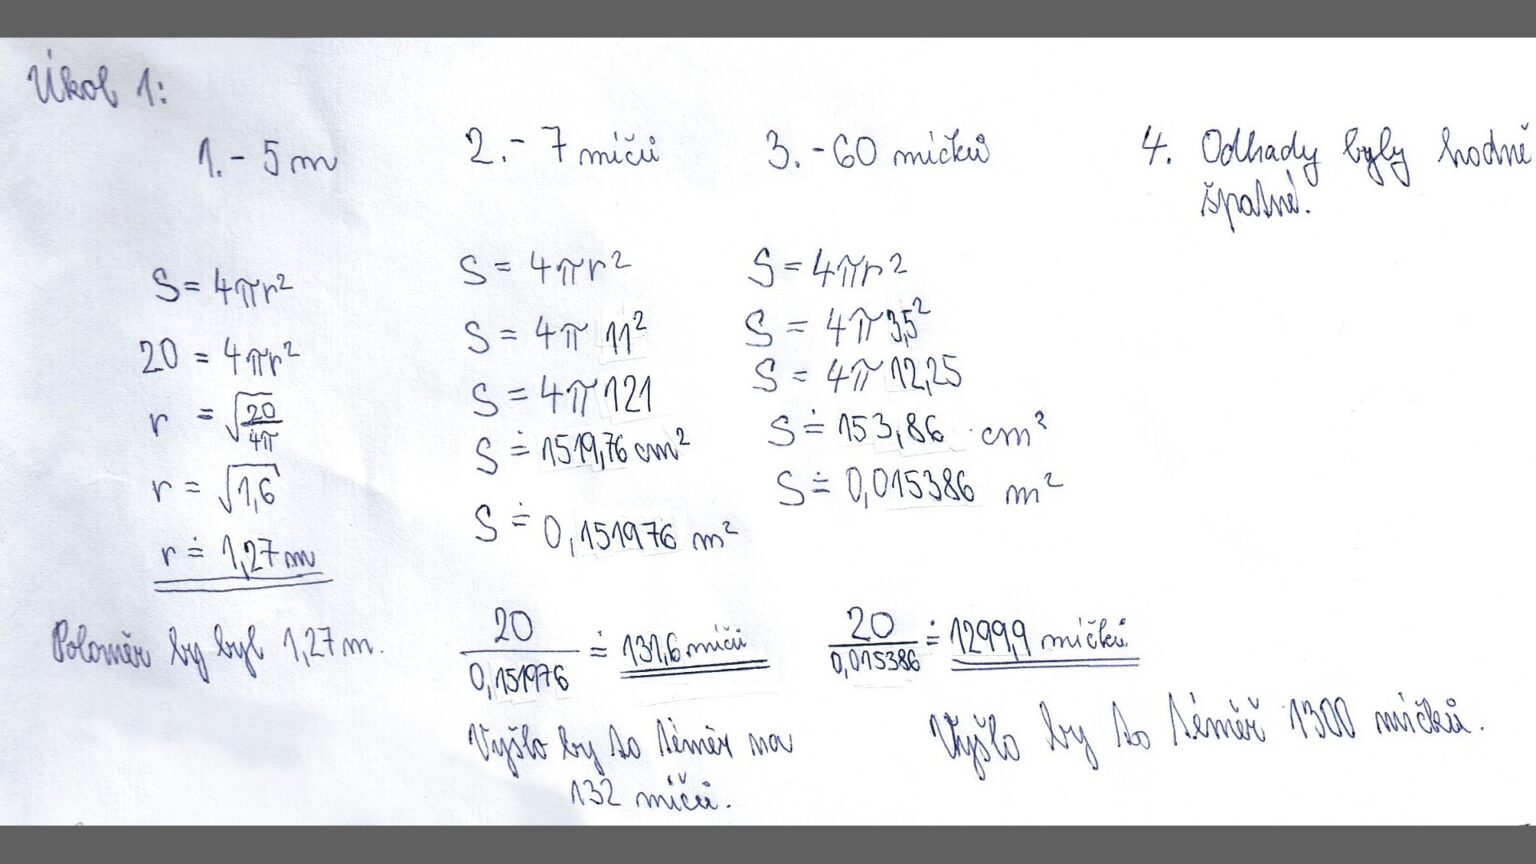 Úkol 1:
1. - 5 m
2. - 7 míčů
3. - 60 míčků
4. Odhady byly hodně
špatné.
S = 4πr²
20 = 4πr²
r = √20/4π
r = √1,6
r ≐ 1,27 m
Poloměr by byl 1,27 m.
S = 4πr²
S = 4π 11²
S = 4π 121
S ≐ 1519,76 cm²
S ≐ 0,151976 m²
20/0,151976 ≐ 131,6 míčů
Vyšlo by to téměř na
132 míčů.
S = 4πr²
S = 4π 3,5²
S = 4π 12,25
S ≐ 153,86 cm²
S ≐ 0,015386 m²
20/0,015386 ≐ 1299,9 míčků
Vyšlo by to téměř 1300 míčků.